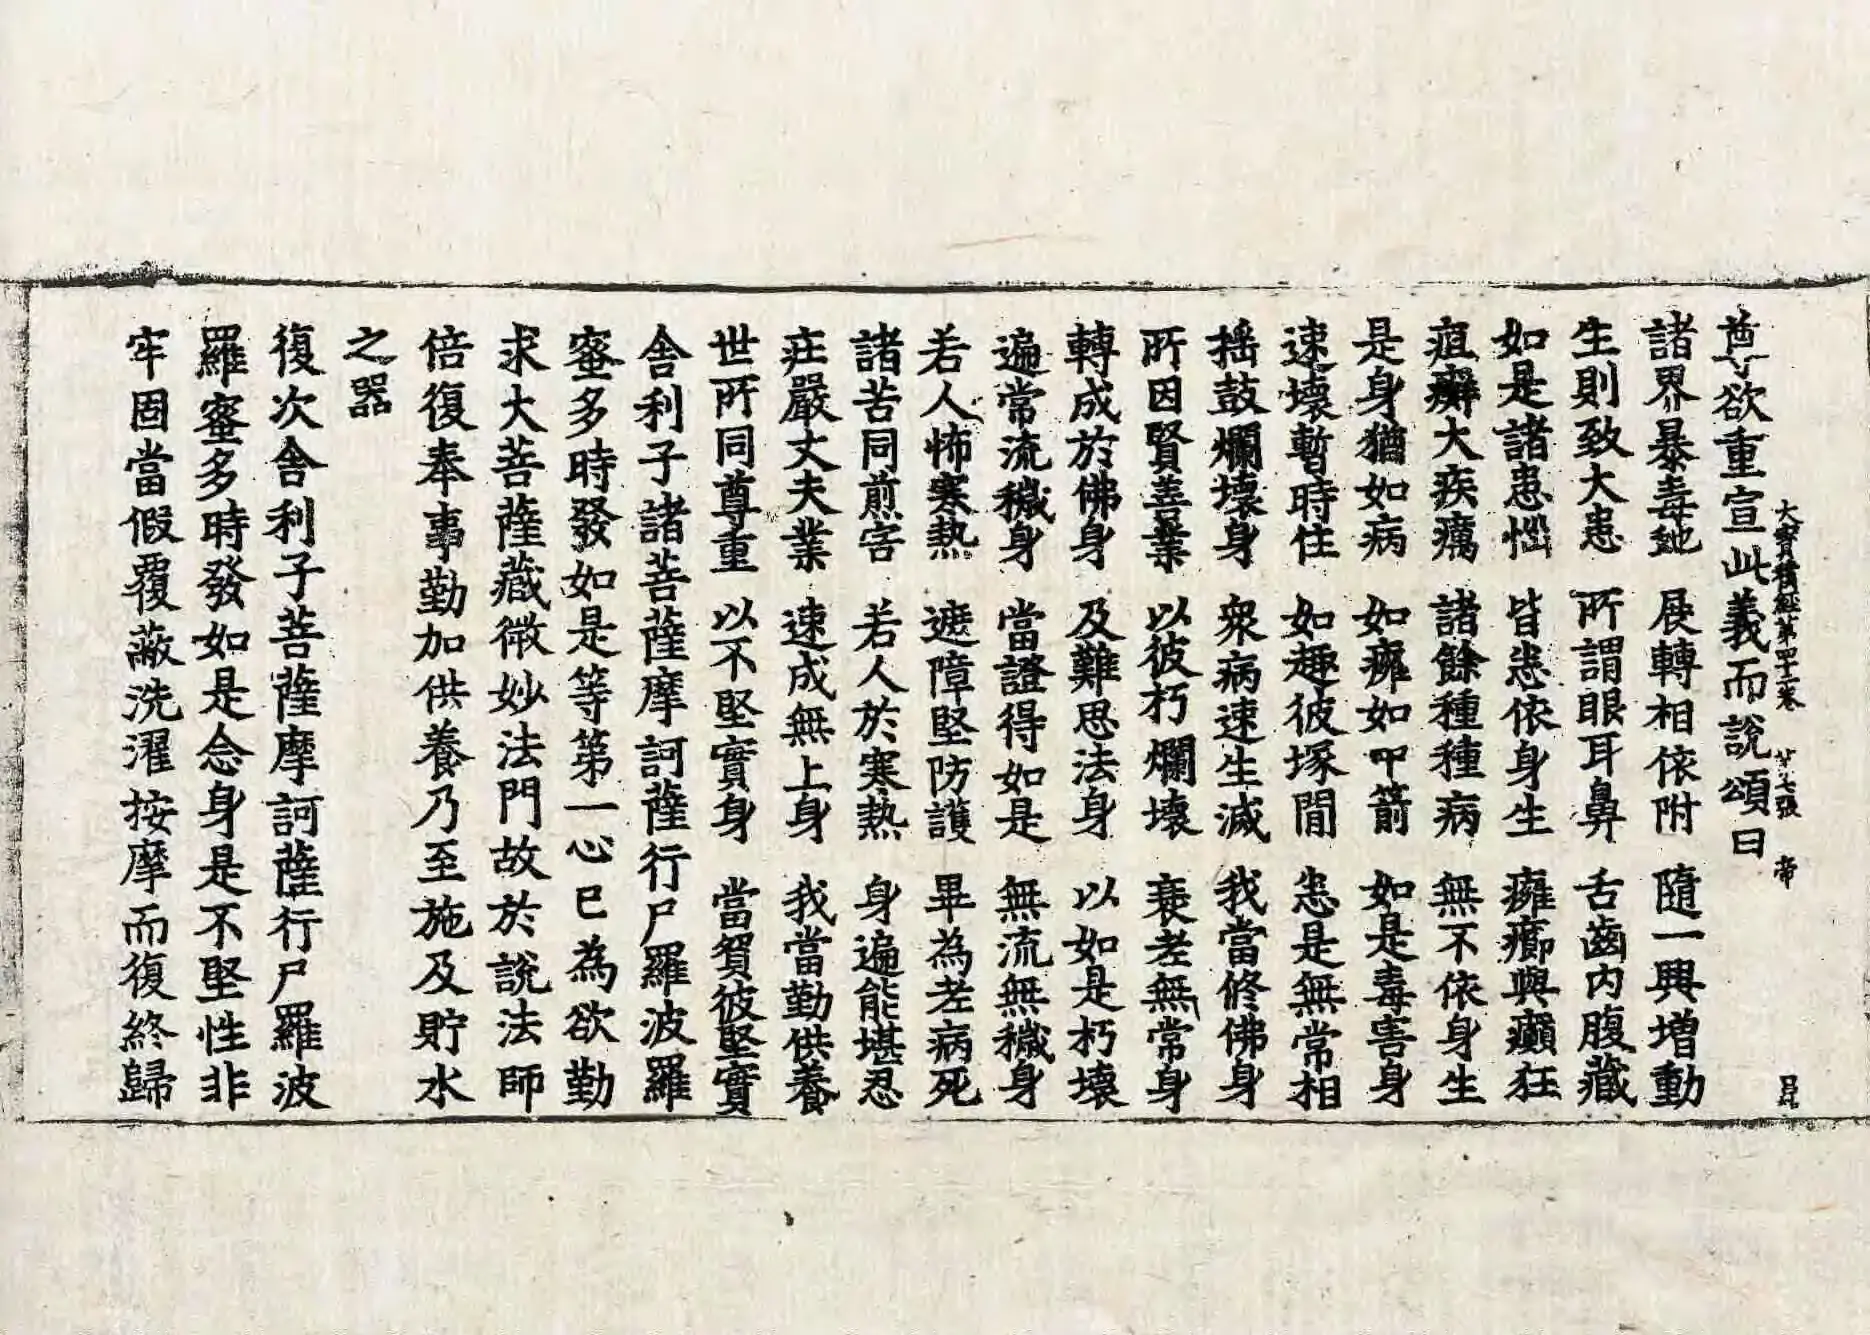 大寶積經第四十二卷 廿七張 帝
尊欲重宣此義而說頌曰
諸界暴毒虵 展轉相依附 隨一興增動
生則致大患 所謂眼耳鼻 舌齒內腹藏
如是諸患惱 皆悲依身生 癰癤與癲狂
疽癬大疾癘 諸餘種種病 無不依身生
是身猶如病 如癰如中箭 如是毒害身
速壞暫時住 如趣彼塚間 悲是無常相
搖鼓爛壞身 衆病速生滅 我當修佛身
所因賢善業 以彼朽爛壞 衰老無常身
轉成於佛身 及難思法身 以如是朽壞
遍常流穢身 當證得如是 無流無穢身
若人怖寒熱 遮障堅防護 畢為老病死
諸苦同煎害 若人於寒熱 身遍能堪忍
莊嚴丈夫業 速成無上身 我當勤供養
世所同尊重 以不堅實身 當貿彼堅實
舍利子諸菩薩摩訶薩行尸羅波羅
蜜多時發如是等第一心已為欲勤
求大菩薩藏微妙法門故於說法師
倍復奉事勤加供養乃至施及貯水
之器
復次舍利子菩薩摩訶薩行尸羅波
羅蜜多時發如是念身是不堅性非
牢固當假覆蔽洗濯按摩而復終歸